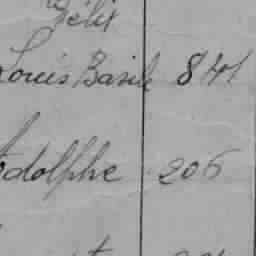 Félix
Louis Basile 841
Adolphe 206